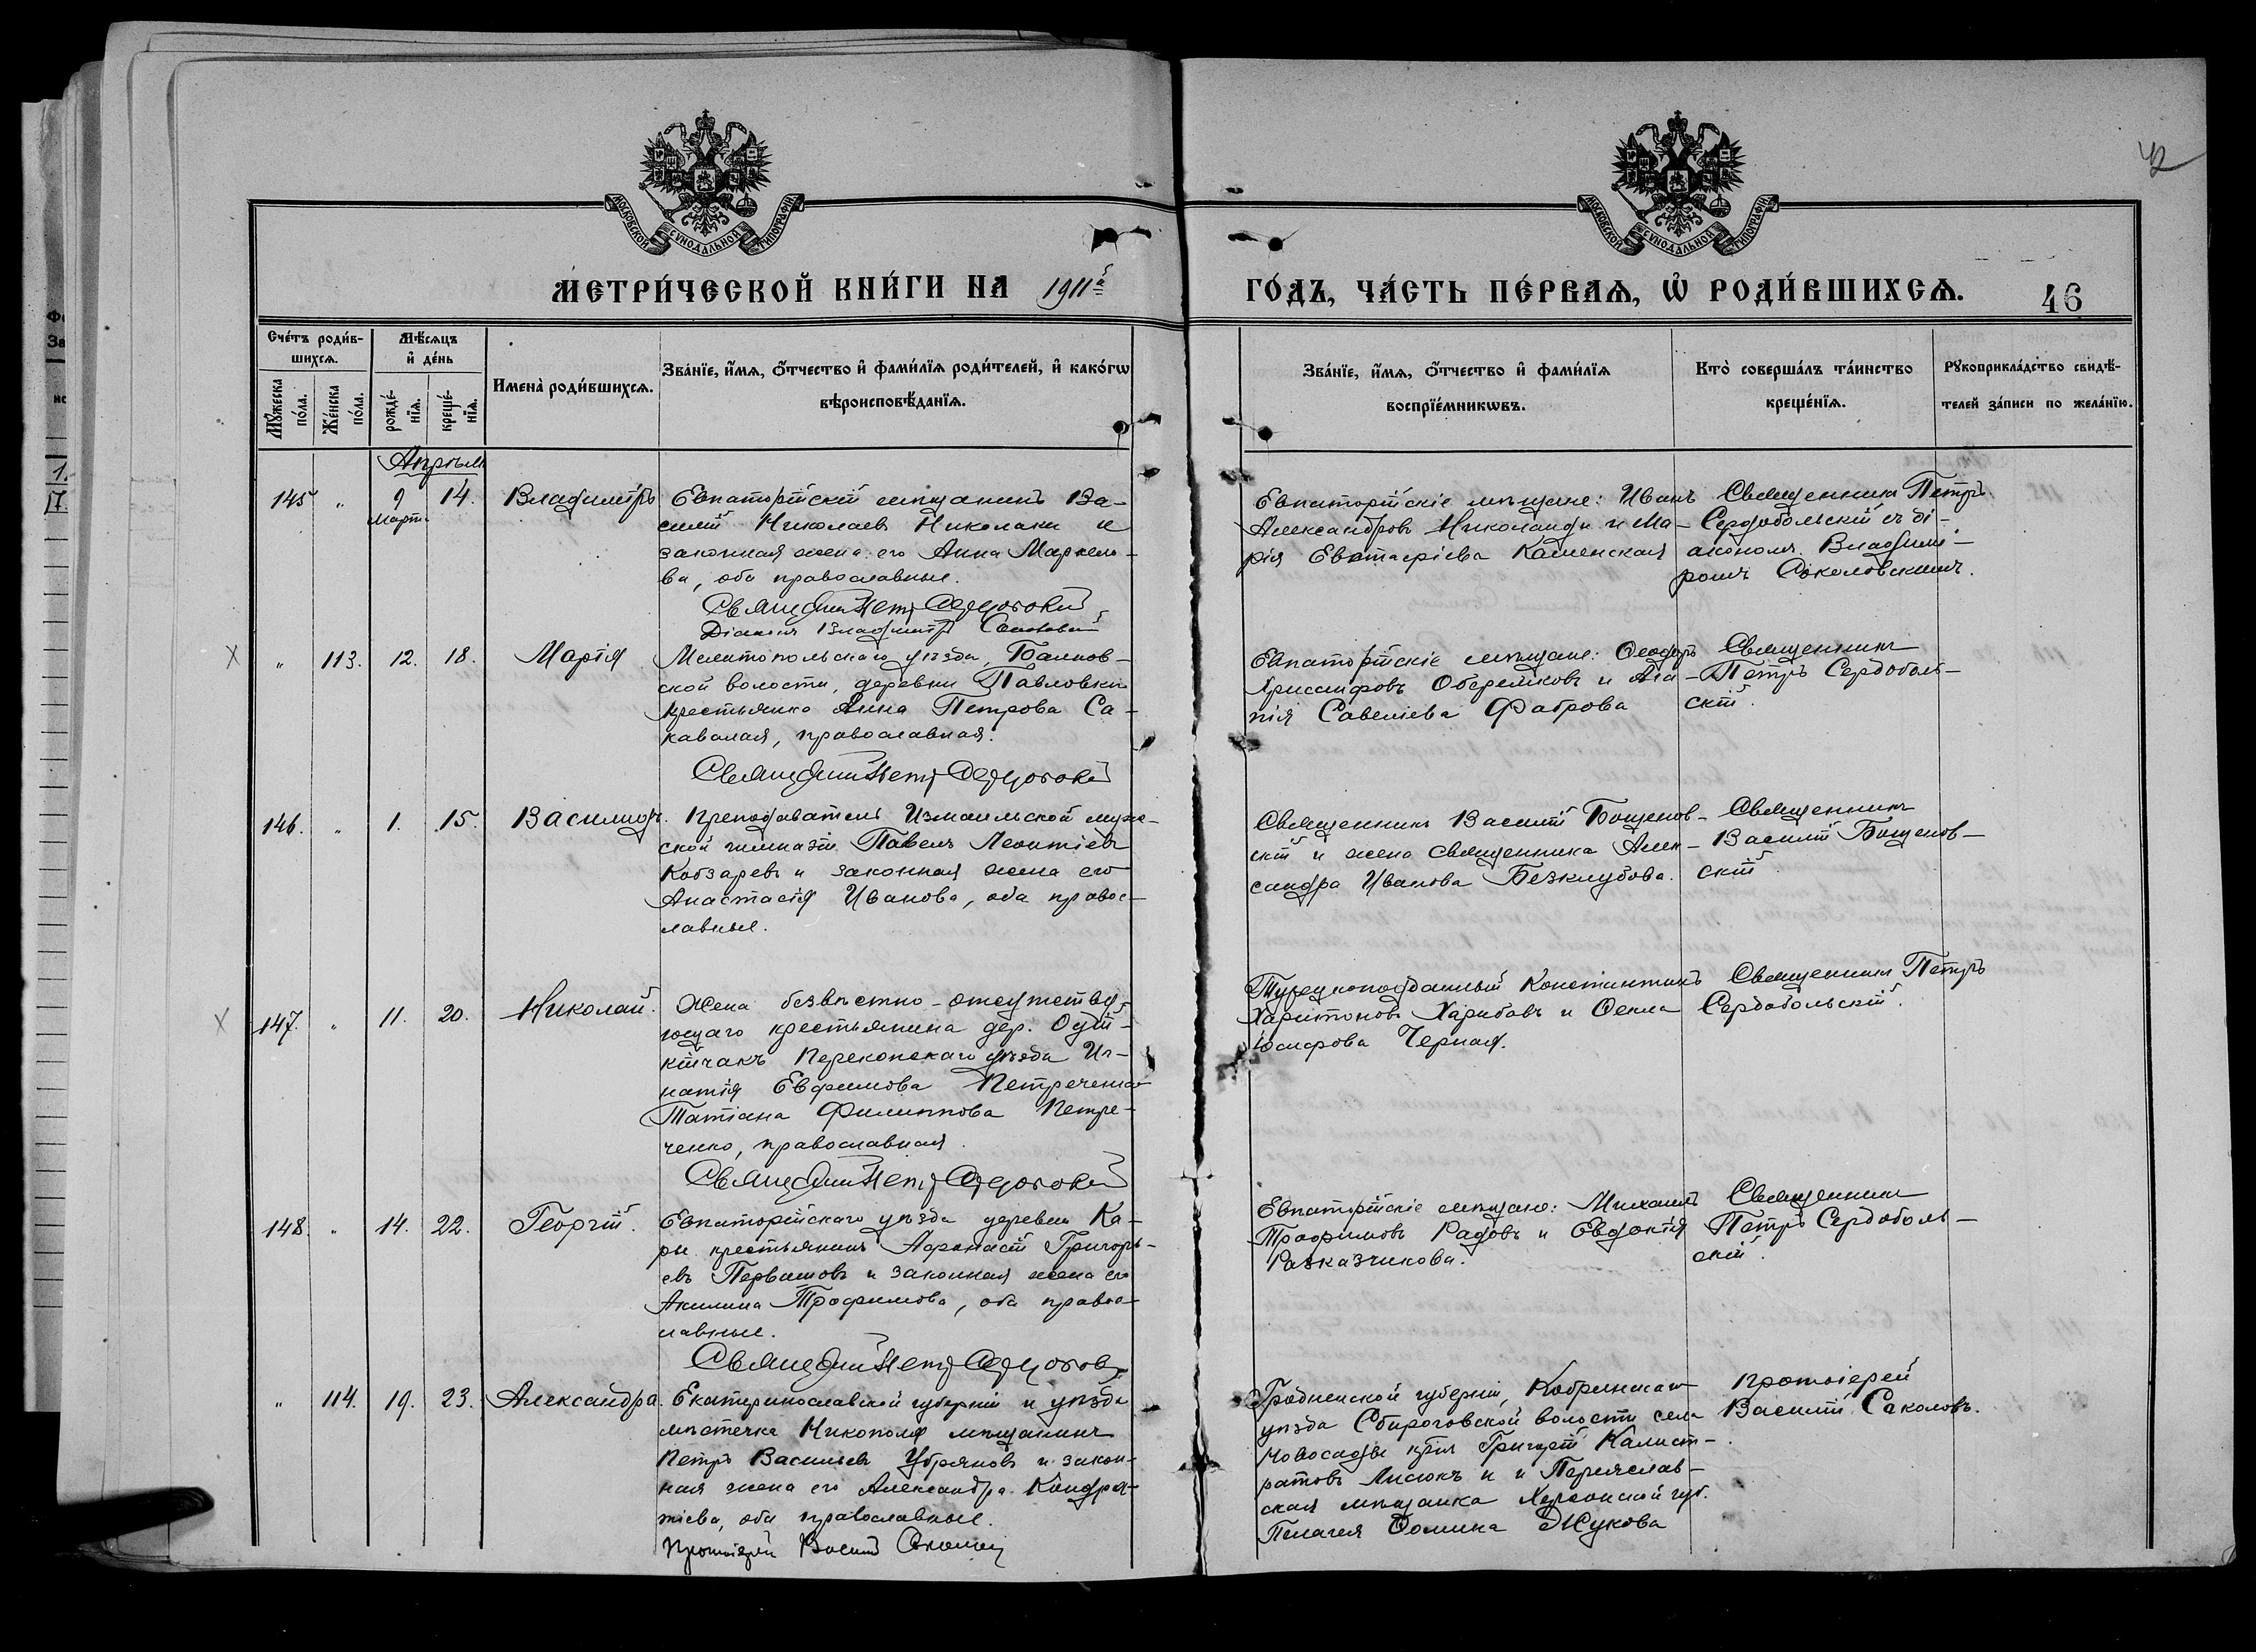 42
МОСКОВСКОЙ СѴНОДАЛЬНОЙ ТИПОГРАФІИ
МОСКОВСКОЙ СѴНОДАЛЬНОЙ ТИПОГРАФІИ
МЕТРИ́ЧЕСКОЙ КНИ́ГИ НА 1911й
ГО́ДЪ, ЧА́СТЬ ПЕ́РВАѦ, Ѡ҆ РОДИ́ВШИХСѦ.
46
Сче́тъ роди́в-
шихсѧ.
Мꙋ́жеска
по́ла.
Же́нска
по́ла.
Мѣ́сѧцъ
и҆ де́нь
рожде́-
нїѧ.
креще́-
нїѧ.
Имена̀ роди́вшихсѧ.
Зва́нїе, и҆́мѧ, ѻ҆́тчество и҆ фами́лїѧ роди́телей, и҆ како́гѡ
вѣроисповѣ́данїѧ.
Зва́нїе, и҆́мѧ, ѻ҆́тчество и҆ фами́лїѧ
воспрїе́мникѡвъ.
Кто̀ соверша́лъ та́инство
креще́нїѧ.
Рꙋкоприкла́дство свидѣ́-
телей за́писи по жела́нїю.
Апрѣль
145 " 9 14. Владиміръ
Март.
Евпаторійскій мѣщанинъ Ва-
силій Николаевъ Николаки и
законная жена его Анна Маркело-
ва, оба православные.
Священникъ Петръ Сердобольскій
Діаконъ Владиміръ Соколовскій
Евпаторійскіе мѣщане: Иванъ
Александровъ Николаиди и Ма-
рія Евстафіева Каменская
Священникъ Петръ
Сердобольскій съ ді-
акономъ Владими-
ромъ Соколовскимъ.
" 113. 12. 18. Марія
Мелитопольскаго уѣзда, Балков-
ской волости, деревни Павловки
крестьянка Анна Петрова Са-
кавалая, православная.
Священникъ Петръ Сердобольскій
Евпаторійскіе мѣщане: Ѳеодоръ
Хрисанфовъ Оберемковъ и Ага-
пія Савеліева Фаброва
Священникъ
Петръ Сердоболь-
скій.
146. " 1. 15. Василидъ.
Преподаватель Измаильской муж-
ской гимназіи Павелъ Леонтіевъ
Кобзаревъ и законная жена его
Анастасія Иванова, оба правос-
лавные.
Священникъ Василій Бощенов-
скій и жена священника Алек-
сандра Иванова Безклубова.
Священникъ
Василій Бощенов-
скій
147. " 11. 20. Николай.
Жена безвѣстно-отсутству-
ющаго крестьянина дер.
кійчакъ Перекопскаго уѣзда Иг-
натія Евфимова Петреченко
Татіана Филиппова Петре-
ченко, православная.
Священникъ Петръ Сердобольскій
Турецкоподданный Константинъ
Харитоновъ Харибовъ и Ѳекла
Іосифова Черная.
Священникъ Петръ
Сердобольскій.
148. " 14. 22. Георгій.
Евпаторійскаго уѣзда деревни Ка-
ры крестьянинъ Афанасій Григорь-
евъ Первашовъ и законная жена его
Акилина Трофимова, оба право-
лавные.
Священникъ Петръ Сердобольскій
Евпаторійскіе мѣщане: Михаилъ
Трофимовъ Радовъ и Евдокія
Разказчикова.
Священникъ
Петръ Сердоболь-
скій.
" 114. 19. 23. Александра.
Екатеринославской губерніи и уѣзда
мѣстечка Никополя мѣщанинъ
Петръ Васильевъ Убряновъ и закон-
ная жена его Александра Кондра-
тіева, оба православные.
Протоіерей Василій Соколовъ
Гродненской губерніи, Кобринскаго
уѣзда Сбироговской волости села
Новосады кр-нъ Григорій Калист-
ратовъ Лисюкъ и и Переяслав-
ская мѣщанка Херсонской губ.
Пелагея Ѳомина Жукова
Протоіерей
Василій Соколовъ.